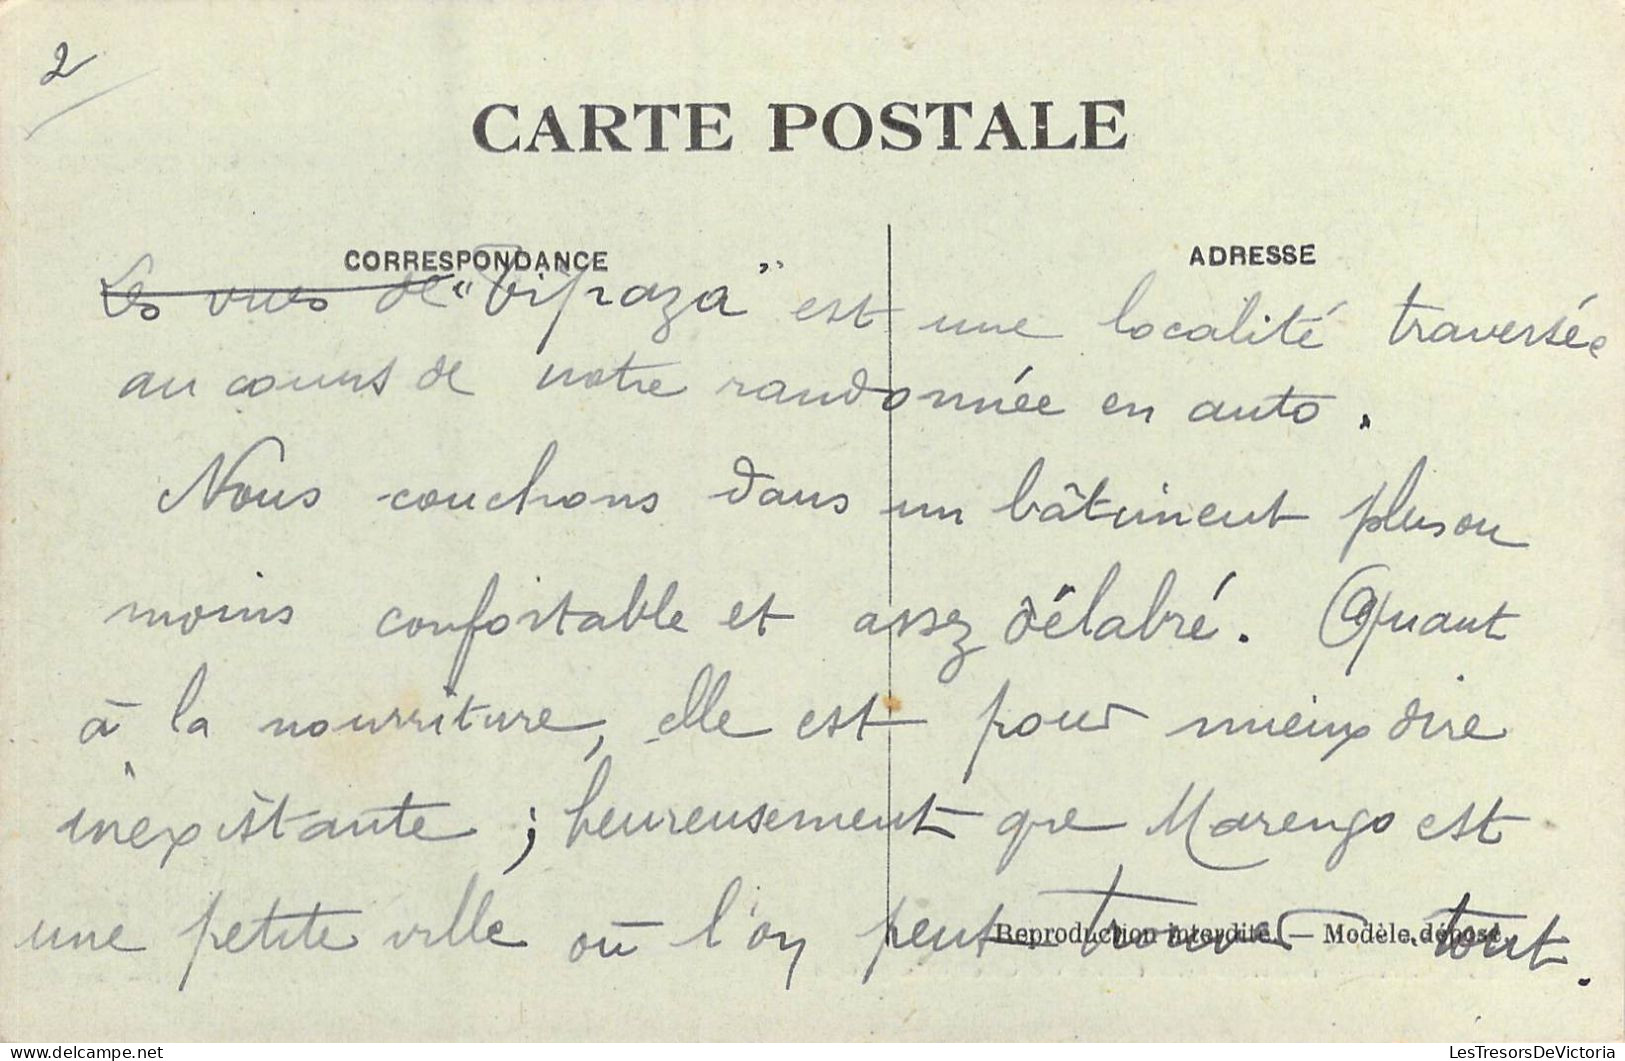 2
CARTE POSTALE
CORRESPONDANCE
ADRESSE
Les vues de "Tipaza" est une localité traversée
au cours de notre randonnée en auto.
Nous couchons dans un bâtiment plus ou
moins confortable et assez délabré. Quant
à la nourriture, elle est pour mieux dire
inexistante ; heureusement que Marengo est
une petite ville où l'on peut trouver tout.
Reproduction interdite. — Modèle déposé
LesTresorsDeVictoria